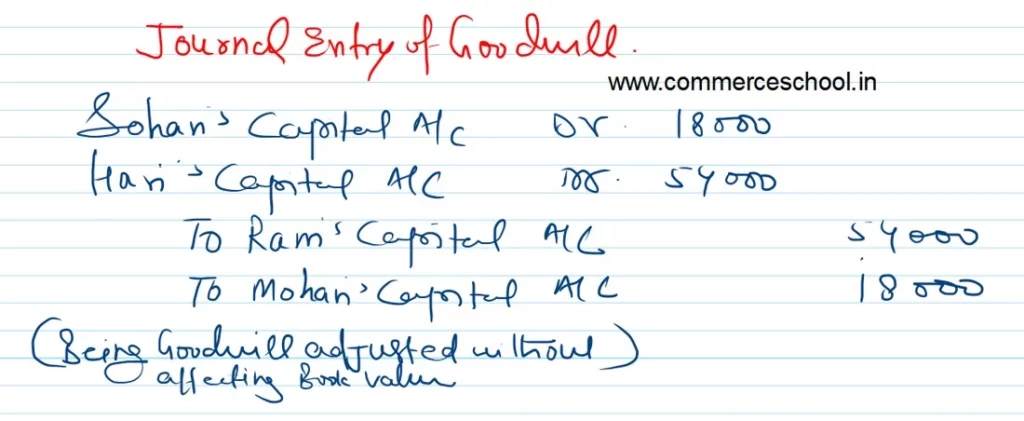 Journal Entry of Goodwill.
www.commerceschool.in
Sohan's Capital A/C Dr. 18000
Hari's Capital A/C Dr. 54000
To Ram's Capital A/C 54000
To Mohan's Capital A/C 18000
(Being Goodwill adjusted without)
affecting Book value